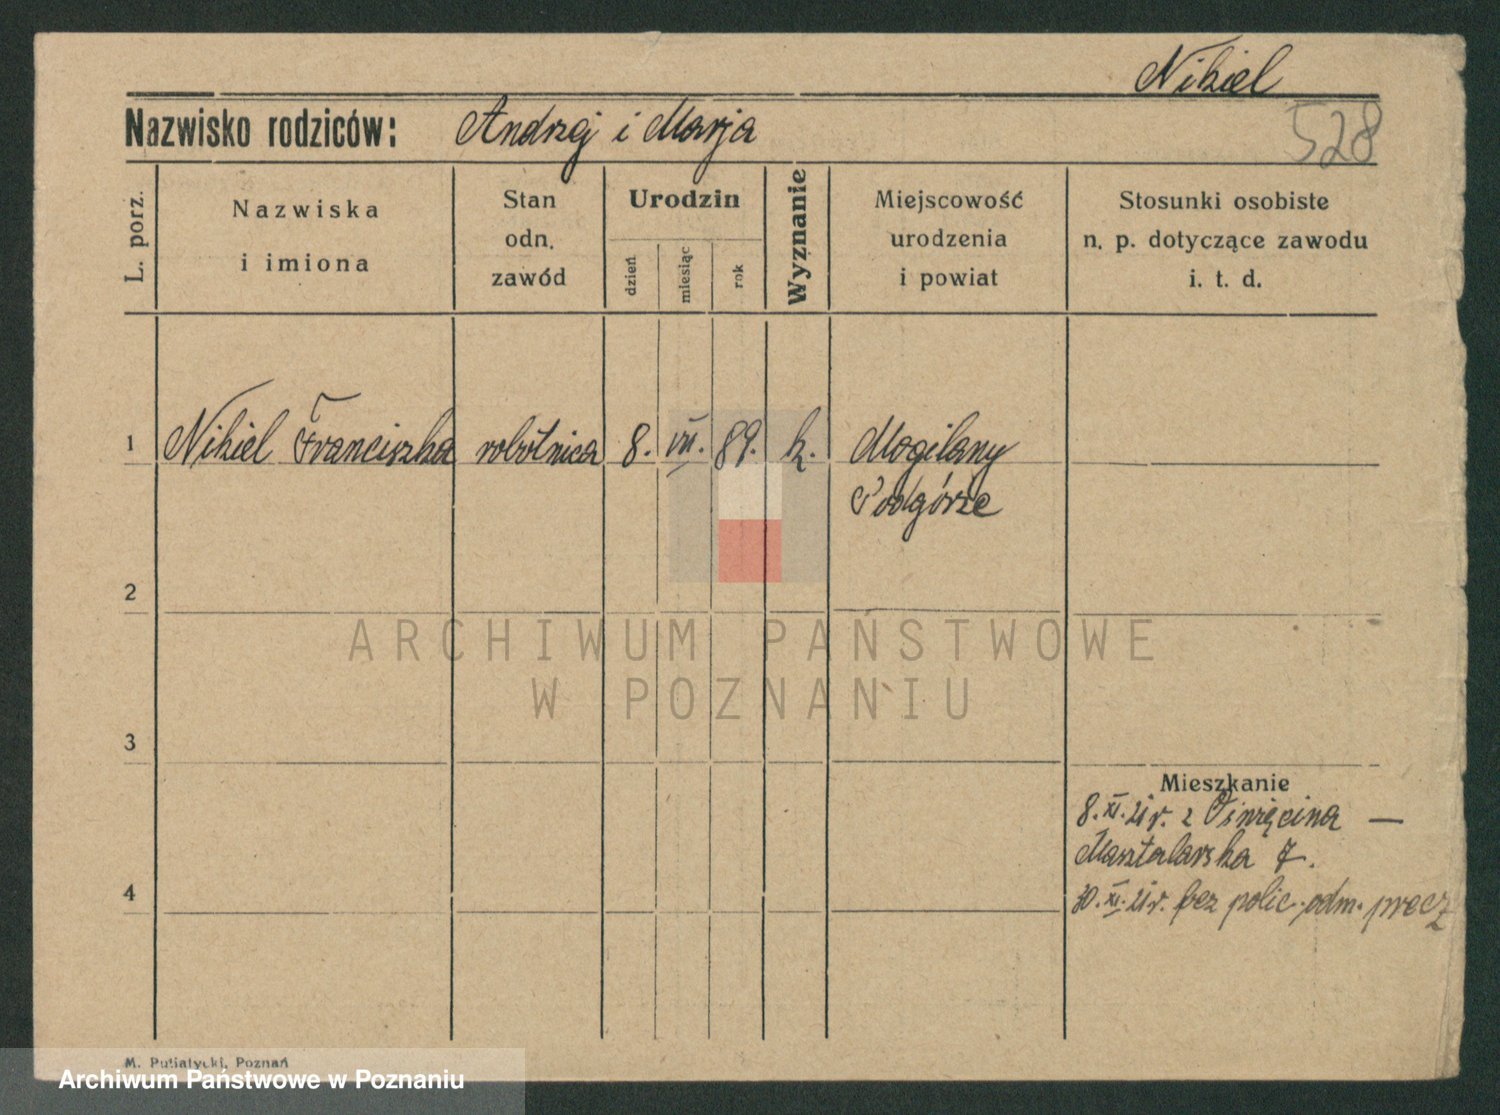 Nikiel
Nazwisko rodziców: Andrzej i Marja
528
L. porz.
Nazwiska
i imiona
Stan
odn.
zawód
Urodzin
dzień
miesiąc
rok
Wyznanie
Miejscowość
urodzenia
i powiat
Stosunki osobiste
n. p. dotyczące zawodu
i. t. d.
1 Nikiel Franciszka robotnica 8. VII. 89. k. Mogilany
Podgórze
2
ARCHIWUM PAŃSTWOWE
W POZNANIU
3
Mieszkanie
8. XI. 21 r. z Oświęcina —
Masztalarska 7.
4
30. XI. 21 r. bez polic. odm. precz
M. Putiatycki, Poznań
Archiwum Państwowe w Poznaniu